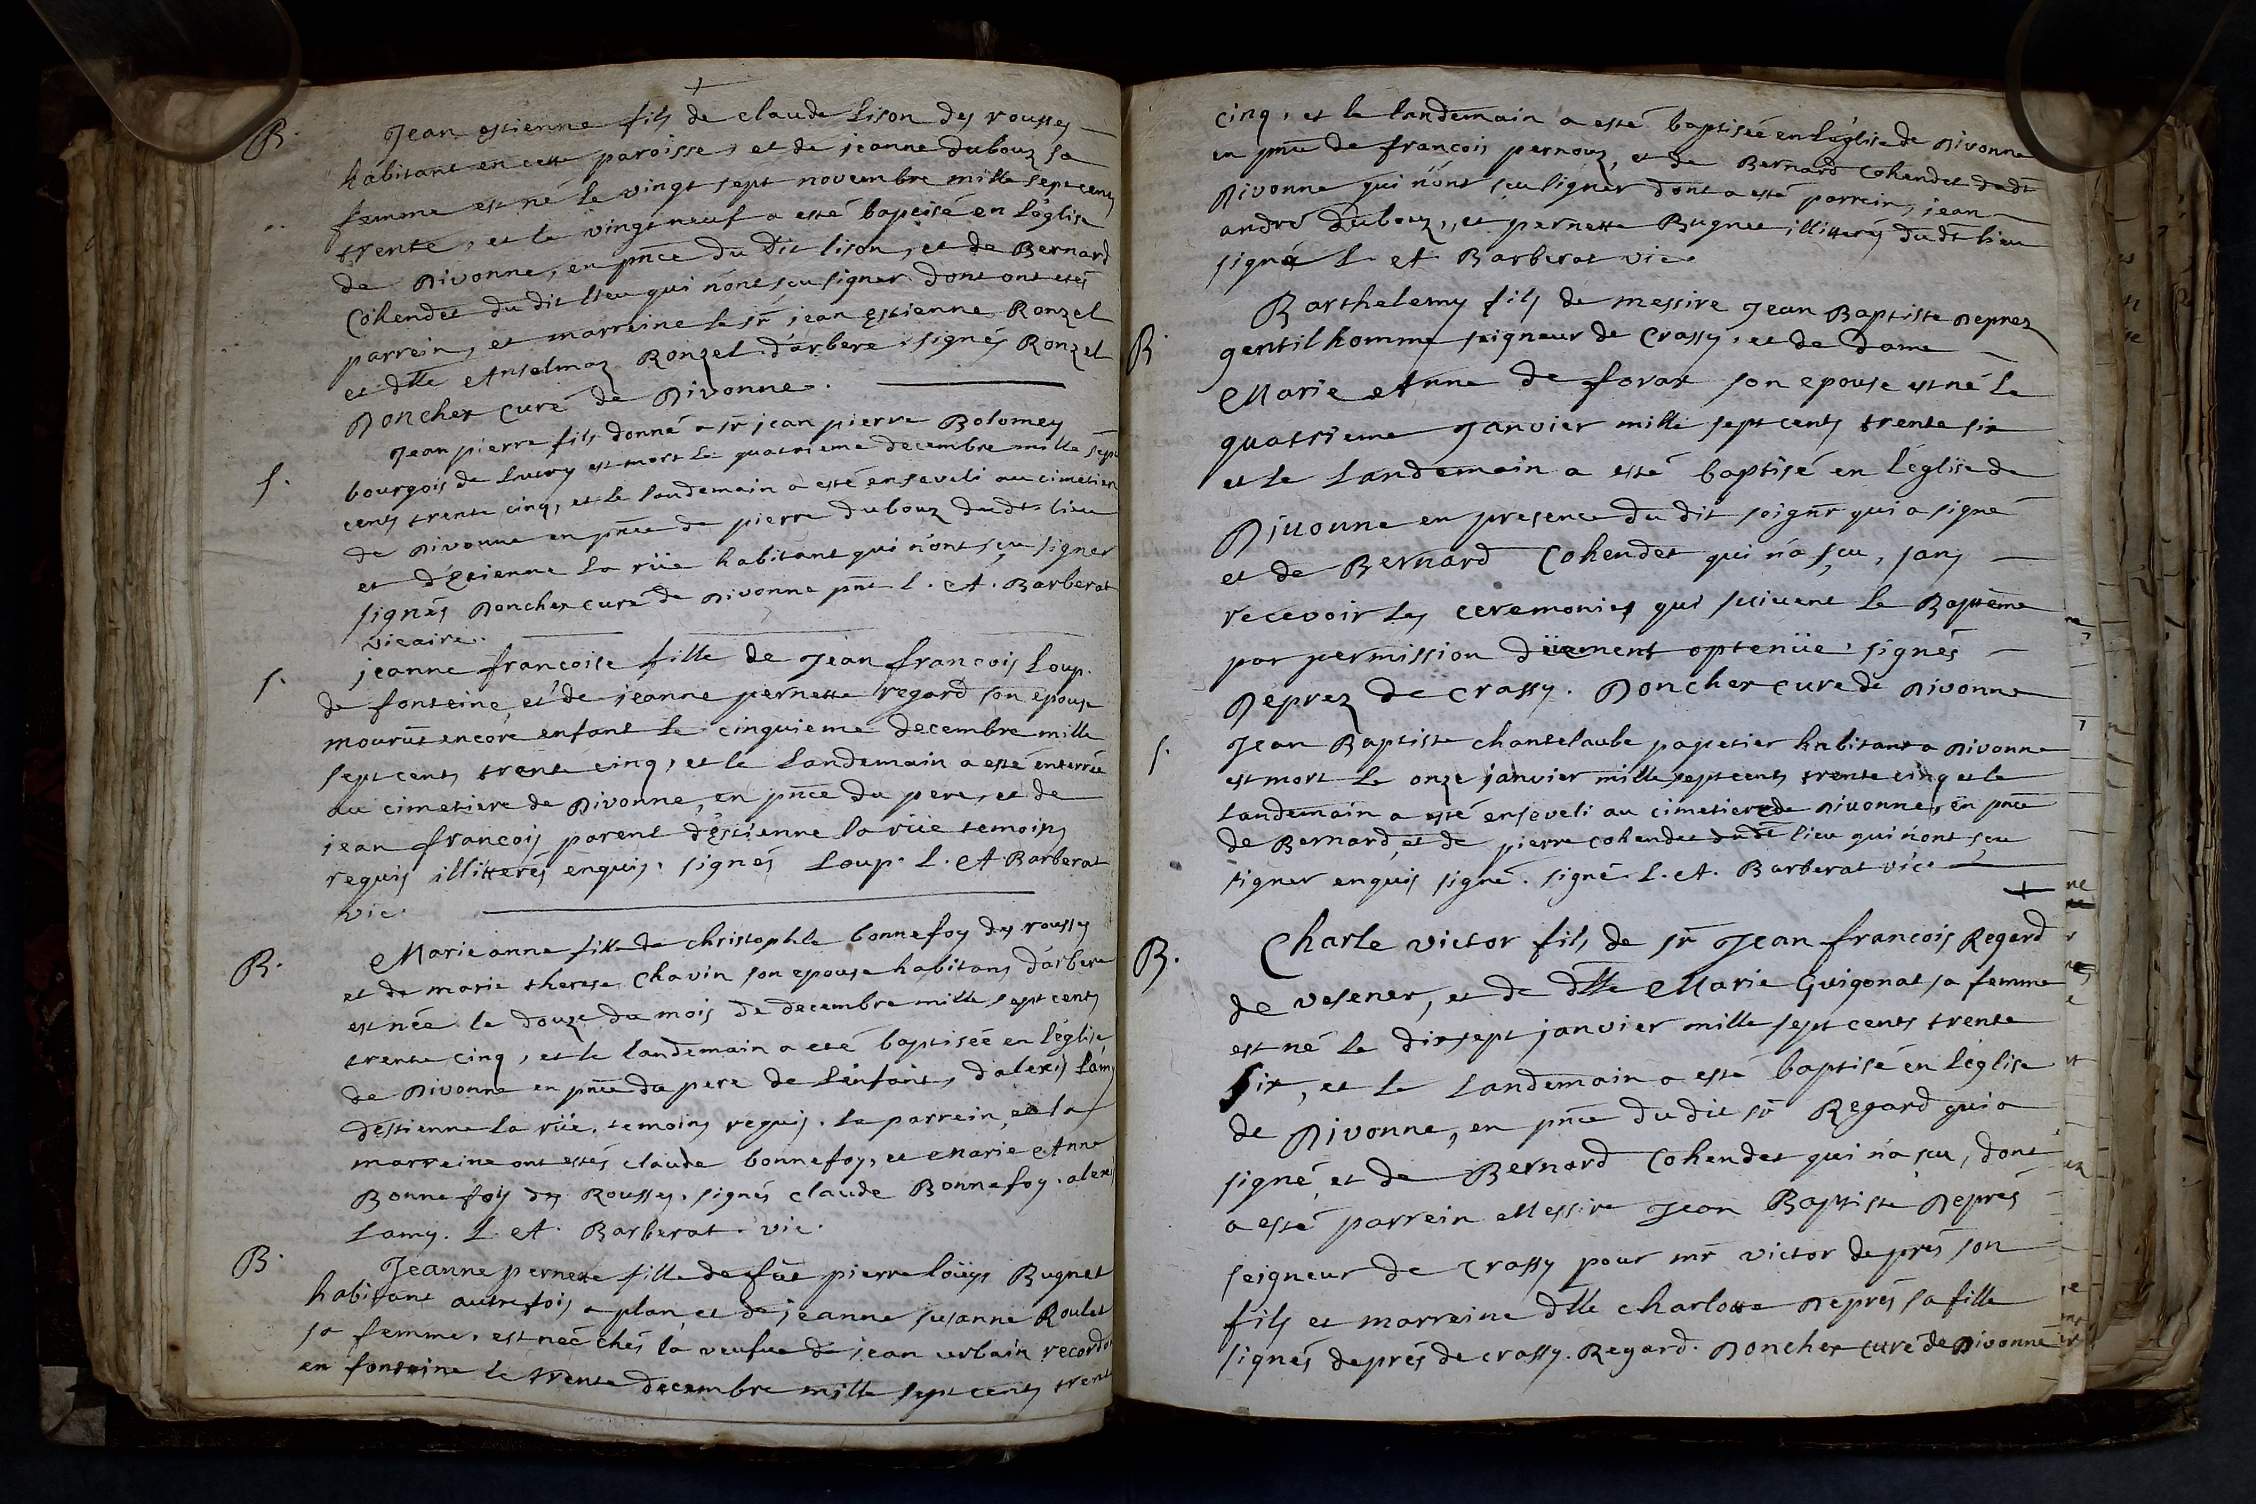 B. Jean estienne fils de claude Lison des rousses
habitant en cette paroisse, et de jeanne dubouz sa
femme est né le vingt sept novembre mille sept cents
trente, et le vingt neuf a esté baptisé en l'église
de Divonne, en pnce du dit lison, et de Bernard
Cohendet du dit lieu qui n'ont scu signer dont ont estés
parrein, et marreine le sr jean estienne Ronzel
et dlle Anselmaz Ronzel d'arbere, signés Ronzel
Doncher Curé de Divonne.
Jean pierre fils donné a sr jean pierre Bolomey
S. bourgois de Lutry est mort le quatrieme decembre mille sept
cents trente cinq, et le landemain a esté enseveli au cimetiere
de Divonne en pnce de pierre dubouz dudt lieu
et d'estienne la rüe habitant qui n'ont sçu signer
signés Doncher curé de Divonne pnt L. A. Barberat
vicaire.
S. jeanne francoise fille de Jean francois Loup
de fonteine, et de jeanne pernette regard son epouse
mourut encore enfant le cinquieme decembre mille
sept cents trente cinq, et le landemain a esté enterrée
au cimetiere de Divonne, en pnce du pere, et de
jean francois parent d'estienne la rüe temoins
requis illitterés enquis. signés Loup. L. A. Barberat
vic.
Marie anne fille de christophle bonnefoy des rousses
B. et de marie therese Chavin son epouse habitans d'arbere
est née le douze du mois de decembre mille sept cents
trente cinq, et le landemain a eté baptisée en l'église
de Divonne en pnce du pere de l'enfant, d'alexis Lamy
destienne la rüe. temoins requis. le parrein, et la
marreine ont estés claude bonnefoy, et Marie Anne
Bonnefoy des Rousses. signés claude Bonnefoy. alexis
Lamy. L. A. Barberat. vic.
B. Jeanne pernette fille de füt pierre loüys Bugnet
habitant autrefois a plan, et de jeanne susanne Roulet
sa femme, est née chés la veufue de jean urbain recordon
en fonteine le trente decembre mille sept cents trente
cinq, et le landemain a esté baptisée en l'église de Divonne
en pnce de francois pernouz, et de Bernard Cohendet dudt
Divonne qui n'ont scu signer dont a esté parrein, jean
andré dubouz, et pernette Bugnet illitterés dudt lieu
signé L. A. Barberat vic.
Barthelemy fils de messire Jean Baptiste Deprez
B. gentilhomme seigneur de Crassy, et de dame
Marie Anne de forax son epouse est né le
quatrieme Janvier mille sept cents trente six
et le Landemain a esté baptisé en l'église de
Divonne en presence du dit seignr qui a signé
et de Bernard Cohendet qui n'a sçu, sans
recevoir les ceremonies qui suivent le Baptême
par permission düement optenüe, signés
Deprez de crassy. Doncher curé de Divonne
S. Jean Baptiste chantelaube papetier habitant a Divonne
est mort le onze janvier mille sept cents trente cinq et le
landemain a esté enseveli au cimetiere de Divonne, en pnce
de Bernard, et de pierre cohendet dudt lieu qui n'ont sçu
signer enquis signé. signé L. A. Barberat vic
B. Charle victor fils de sr Jean francois Regard
de vesener, et de dlle Marie Guigonat sa femme
est né le dixsept janvier mille sept cents trente
six, et le landemain a esté baptisé en l'église
de Divonne, en pnce du dit sr Regard qui a
signé, et de Bernard Cohendet qui n'a sçu, dont
a esté parrein Messire Jean Baptiste Deprés
seigneur de Crassy pour mr victor deprés son
fils et marreine dlle charlotte Deprés sa fille
signés deprés de crassy. Regard. Doncher curé de Divonne